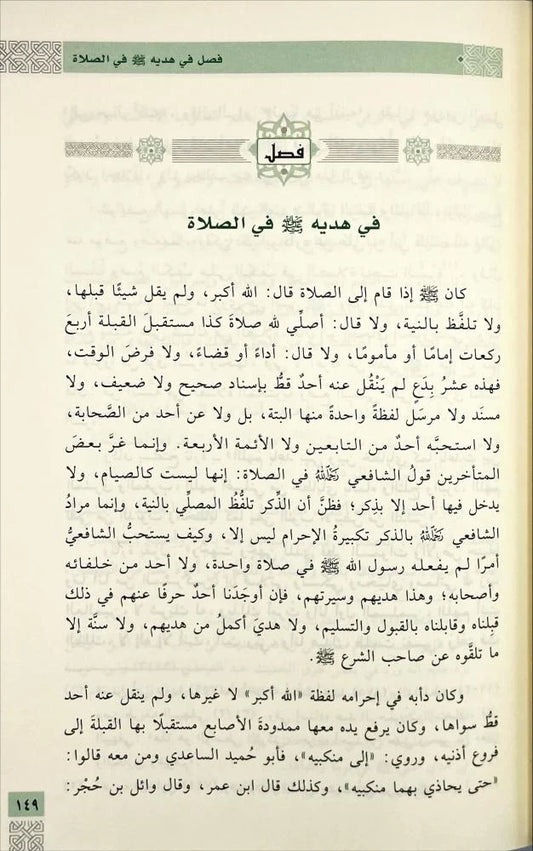 فصل في هديه ﷺ في الصلاة
فصل
في هديه ﷺ في الصلاة
كان ﷺ إذا قام إلى الصلاة قال: الله أكبر، ولم يقل شيئًا قبلها،
ولا تلفَّظ بالنية، ولا قال: أصلِّي لله صلاةَ كذا مستقبلَ القبلة أربعَ
ركعات إمامًا أو مأمومًا، ولا قال: أداءً أو قضاءً، ولا فرضَ الوقت،
فهذه عشرُ بِدَعٍ لم يَنْقُل عنه أحدٌ قطُّ بإسناد صحيح ولا ضعيف، ولا
مسنَد ولا مرسَل لفظةً واحدةً منها البتة، بل ولا عن أحد من الصَّحابة،
ولا استحبَّه أحدٌ من التابعين ولا الأئمة الأربعة. وإنما غرَّ بعضَ
المتأخرين قولُ الشافعي رَحِمَهُ ٱللَّهُ في الصلاة: إنها ليست كالصيام، ولا
يدخل فيها أحد إلا بذِكر؛ فظنَّ أن الذِّكر تلفُّظُ المصلِّي بالنية، وإنما مرادُ
الشافعي رَحِمَهُ ٱللَّهُ بالذكر تكبيرةُ الإحرام ليس إلا، وكيف يستحبُّ الشافعيُّ
أمرًا لم يفعله رسول الله ﷺ في صلاة واحدة، ولا أحد من خلفائه
وأصحابه؛ وهذا هديهم وسيرتهم، فإن أوجَدَنا أحدٌ حرفًا عنهم في ذلك
قبِلناه وقابلناه بالقبول والتسليم، ولا هديَ أكملُ من هديهم، ولا سنَّة إلا
ما تلقَّوه عن صاحب الشرع ﷺ.
وكان دأبه في إحرامه لفظة «الله أكبر» لا غيرها، ولم ينقل عنه أحد
قطُّ سواها، وكان يرفع يده معها ممدودةَ الأصابع مستقبلًا بها القبلةَ إلى
فروع أذنيه، وروي: «إلى منكبيه»، فأبو حُميد الساعدي ومن معه قالوا:
«حتى يحاذي بهما منكبيه»، وكذلك قال ابن عمر، وقال وائل بن حُجْر:
١٤٩